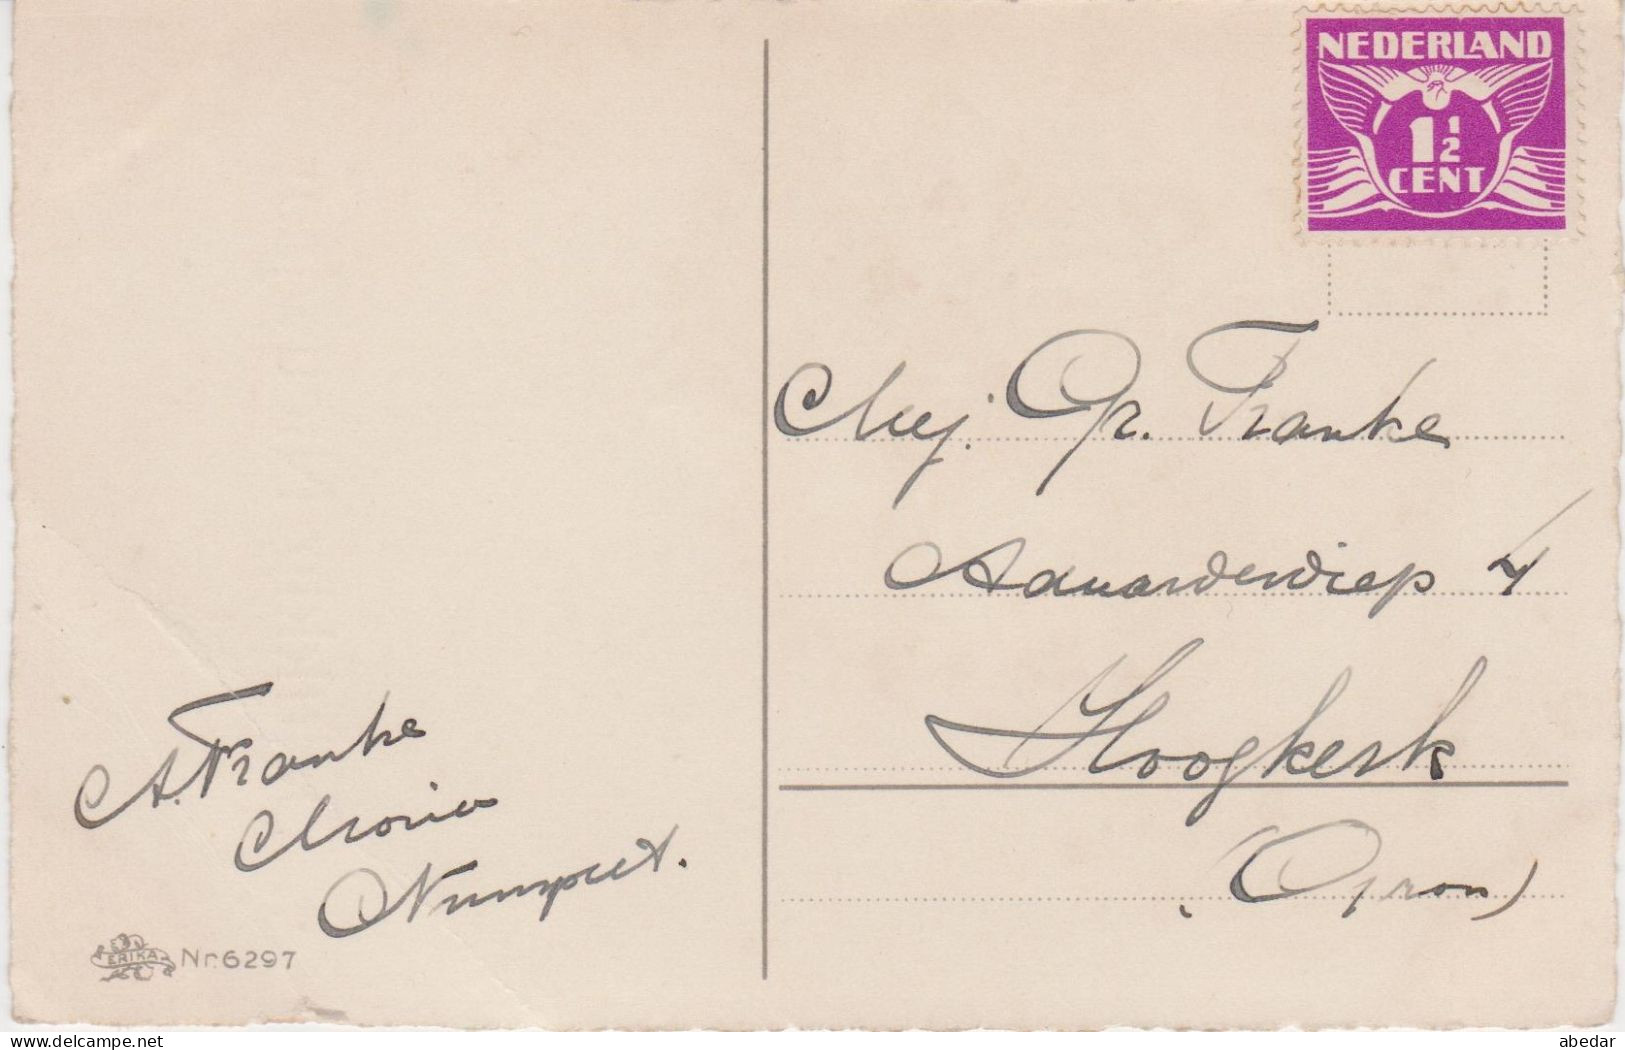 NEDERLAND
1 1/2
CENT
Mej. Gr. Franke
Aduarderdiep 4
Hoogkerk
(Gron)
A. Franke
Nunspeet.
ERIKA Nr. 6297
delcampe.net
abedar